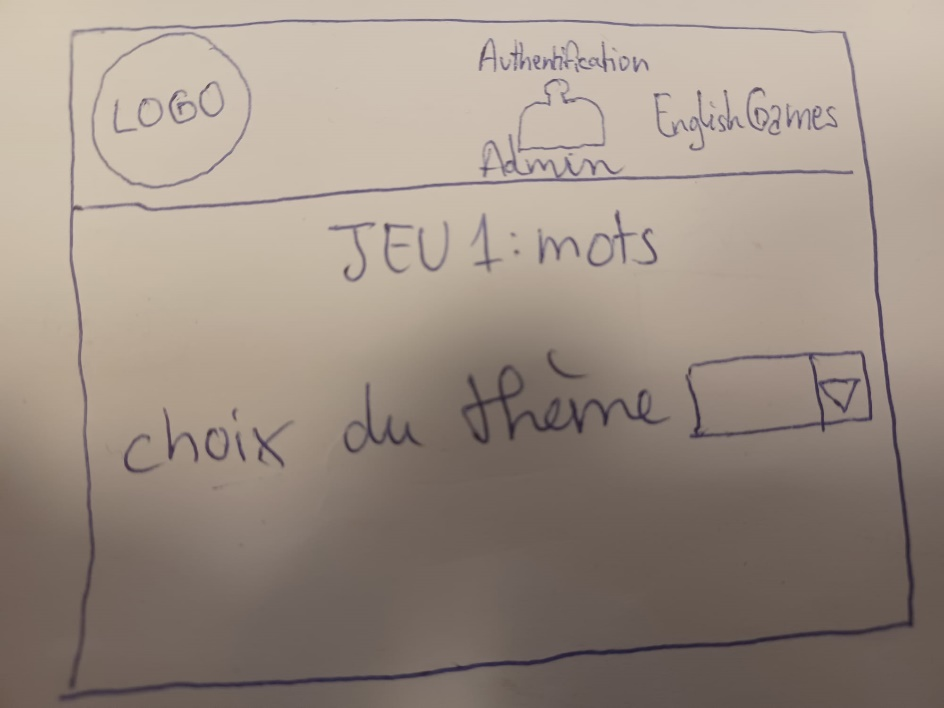 LOGO
Authentification
Admin
EnglishGames
JEU 1: mots
choix du thème